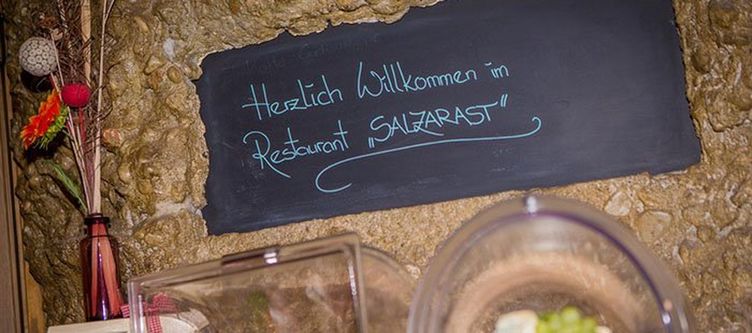 Herzlich Willkommen im
Restaurant „SALZARAST“